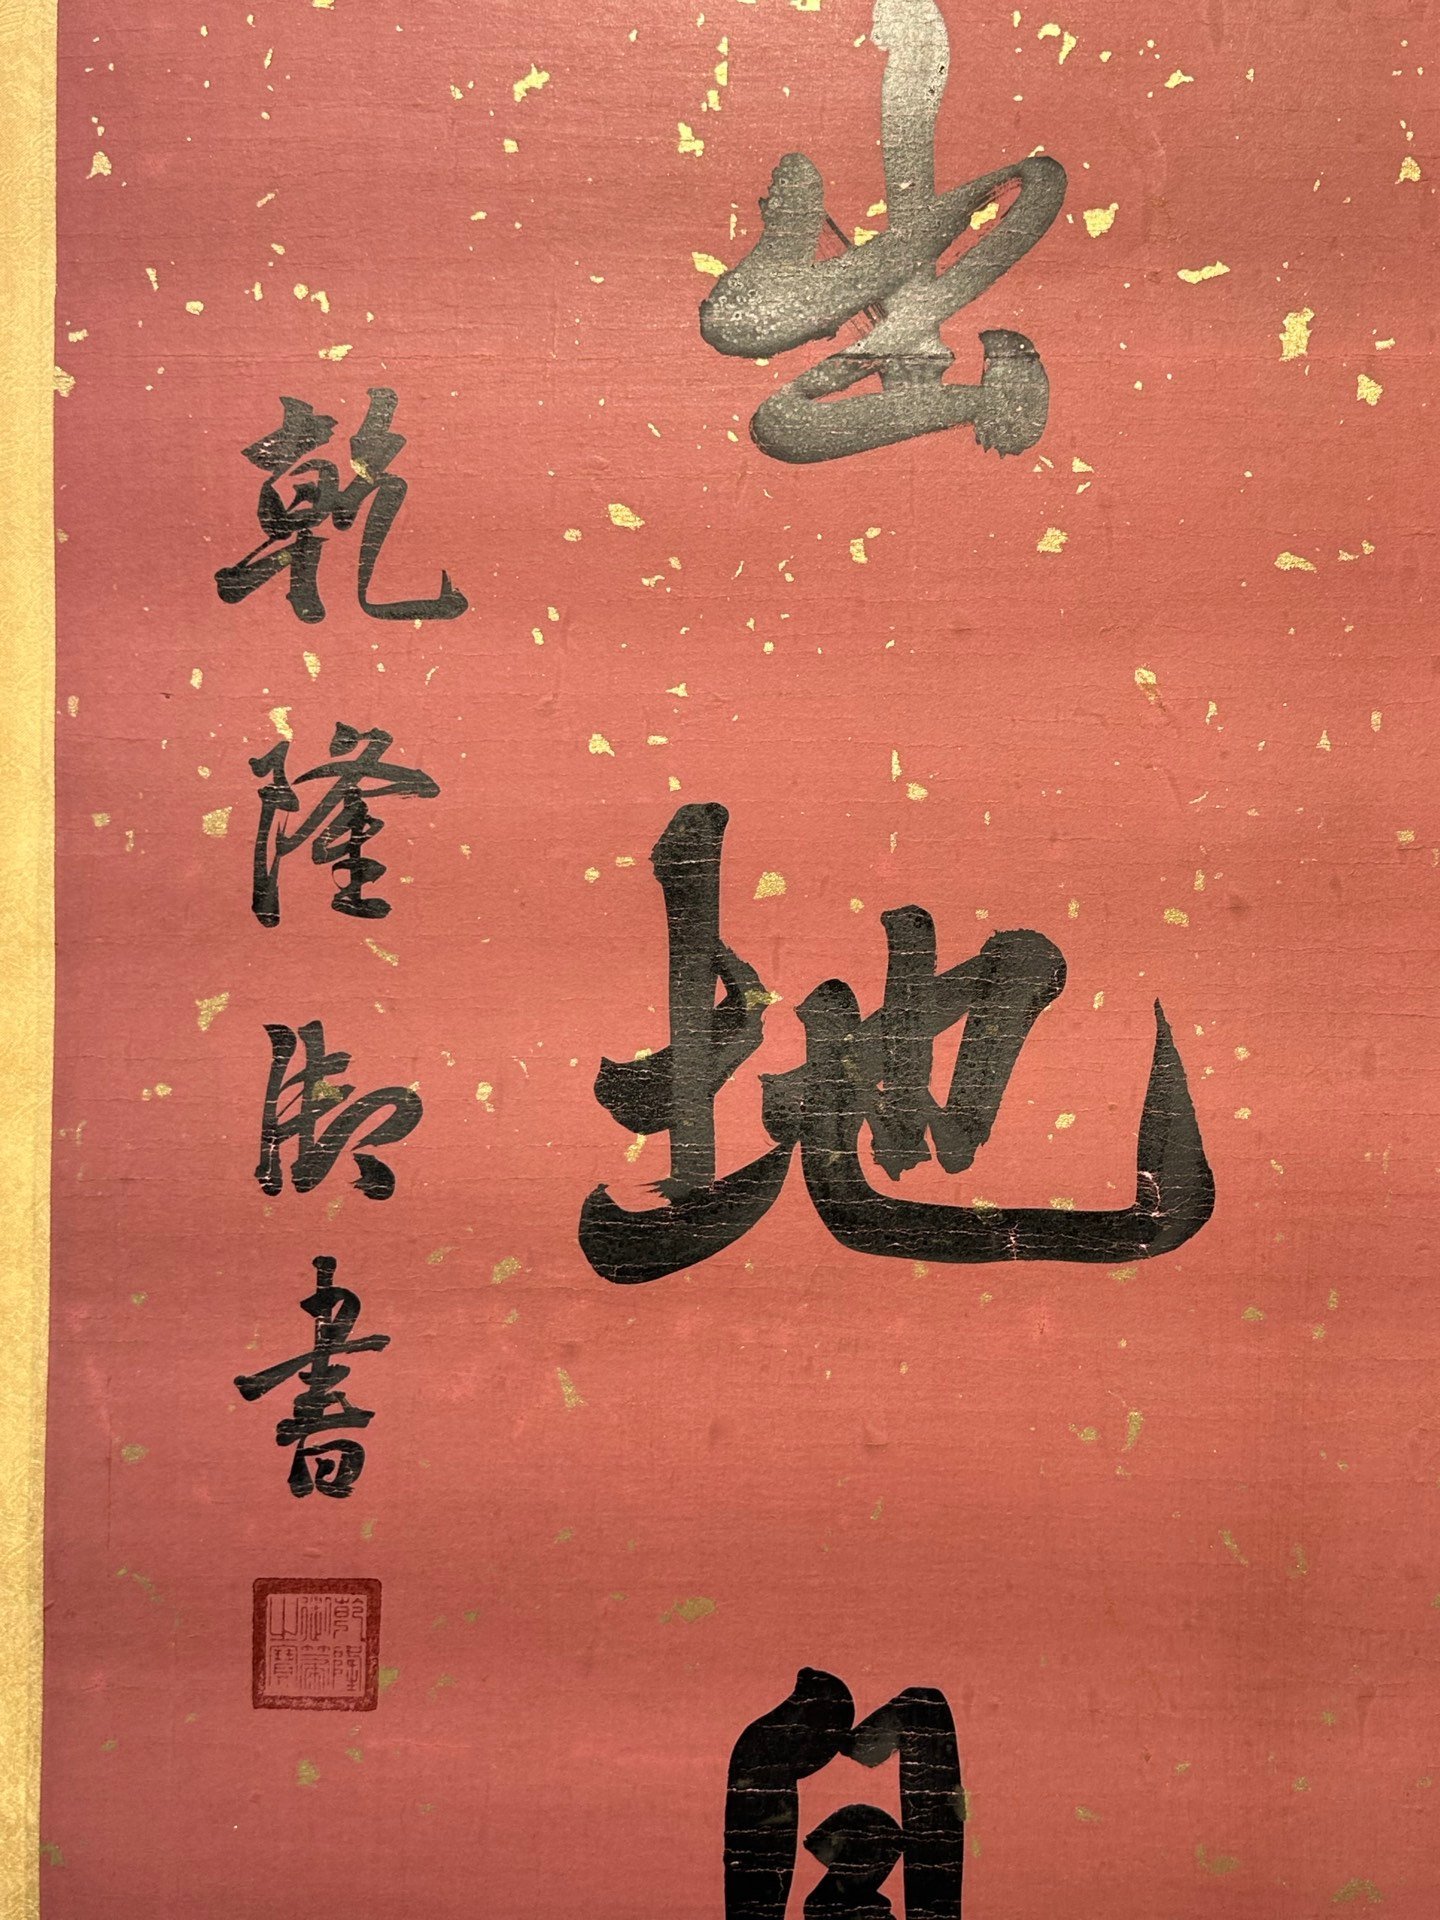 出地
乾隆御書
乾隆
御筆
之寶